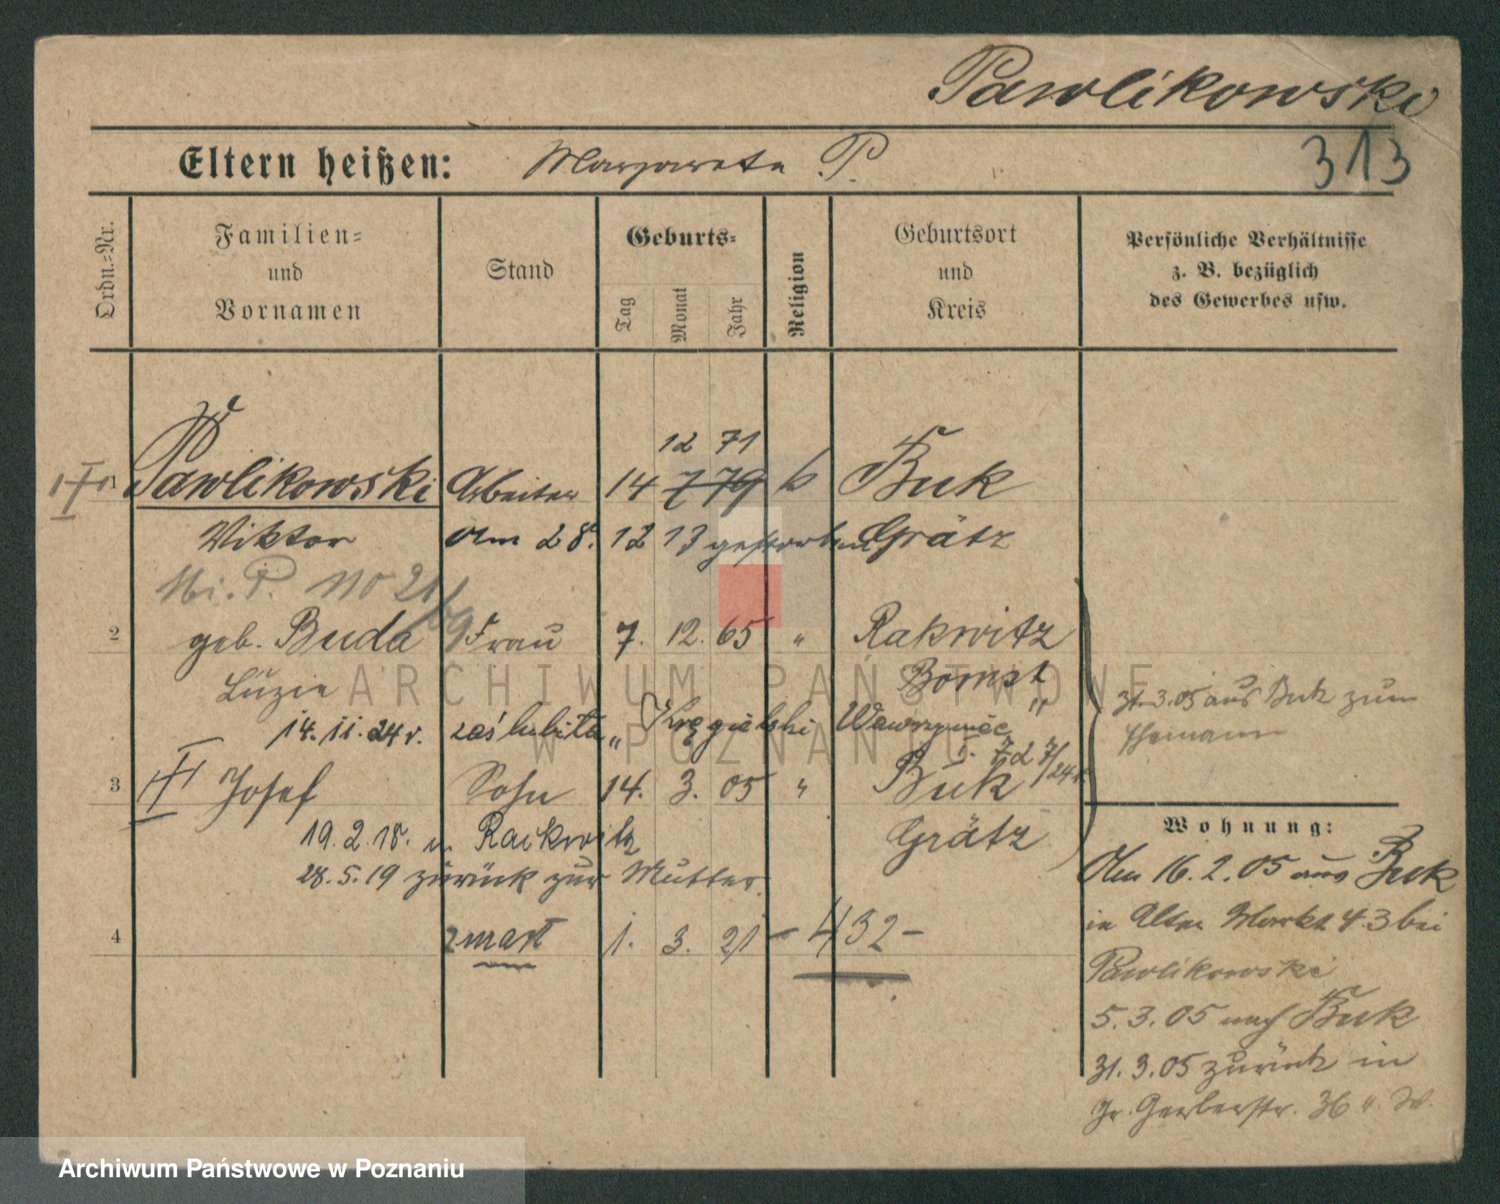 Pawlikowski
Eltern heißen: Margareta P.
313
Ordn.=Nr.
Familien=
und
Vornamen
Stand
Geburts=
Tag
Monat
Jahr
Religion
Geburtsort
und
Kreis
Persönliche Verhältnisse
z. B. bezüglich
des Gewerbes usw.
12 71
1 Pawlikowski Arbeiter 14 7 79 k Buk
Viktor Am 28. 12 13 gestorben Grätz
2 geb. Buda Frau 7. 12. 65 " Rakwitz
Luzie Bomst
31.3.05 aus Buk zum
Ehemann
14. 11. 24 r. zaślubiła Kręgielski Wawrzyniec
3 II Josef Sohn 14. 3. 05 " Buk
Grätz
19. 2. 18. n. Rackwitz
28. 5. 19 zurück zur Mutter.
4 zmarł 1. 3. 21 – 432 –
Wohnung:
Am 16. 2. 05 aus Buk
in Alter Markt 43 bei
Pawlikowski
5. 3. 05 nach Buk
31. 3. 05 zurück in
Gr. Gerberstr. 36
ARCHIWUM PAŃSTWOWE
W POZNANIU
Archiwum Państwowe w Poznaniu